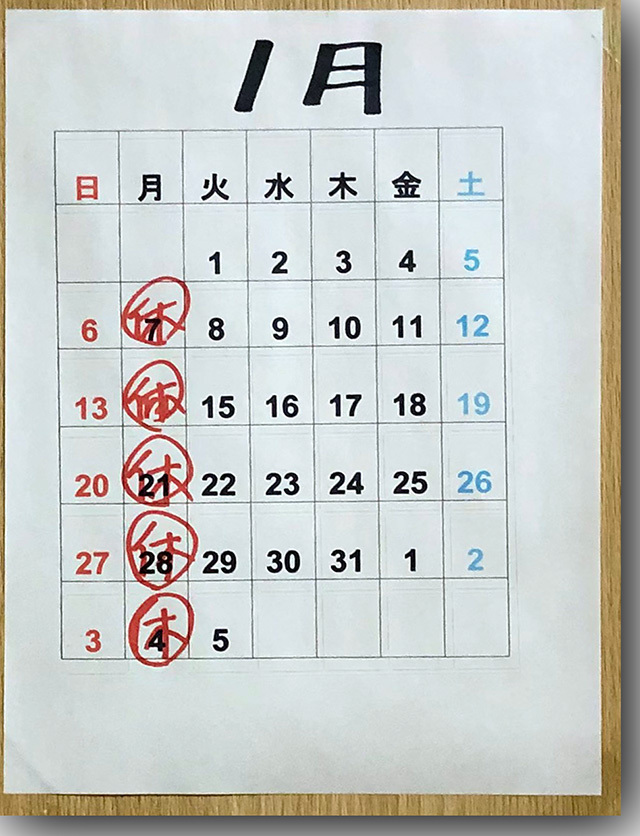 1月
日 月 火 水 木 金 土
1 2 3 4 5
6 休 7 8 9 10 11 12
13 休 15 16 17 18 19
20 休 21 22 23 24 25 26
27 休 28 29 30 31 1 2
3 休 4 5